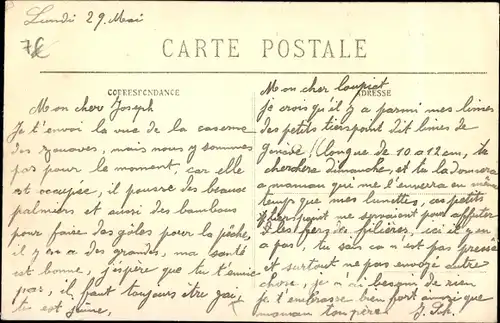 Lundi 29 Mai
7E
CARTE POSTALE
CORRESPONDANCE
ADRESSE
Mon cher Joseph
Je t'envoi la vue de la caserne
des zouaves, mais nous y sommes
pas pour le moment, car elle
est occupée, il pousse des beaux
palmiers et aussi des bambous
pour faire des gôles pour la pêche,
il y en a des grandes, ma santé
est bonne, j'espère que tu t'ennuie
pas, il faut toujours être gai,
tu est jeune,
Mon cher loupiot
je crois qu'il y a parmi mes limes
des petits tierspoint dit limes de
Genève (longue de 10 a 12 cm, tu
cherchera dimanche, et tu la donnera
a maman qui me l'enverra en même
temps que mes lunettes, ces petits
tierspoint me servaient pour affuter
les fers de filières, ici il y en
a pas, tu sais ca n'est pas pressé
et surtout ne pas envoyé autre
chose, je n'ai besoin de rien
Je t'embrasse bien fort ainsi que
maman ton père
J. Ph.